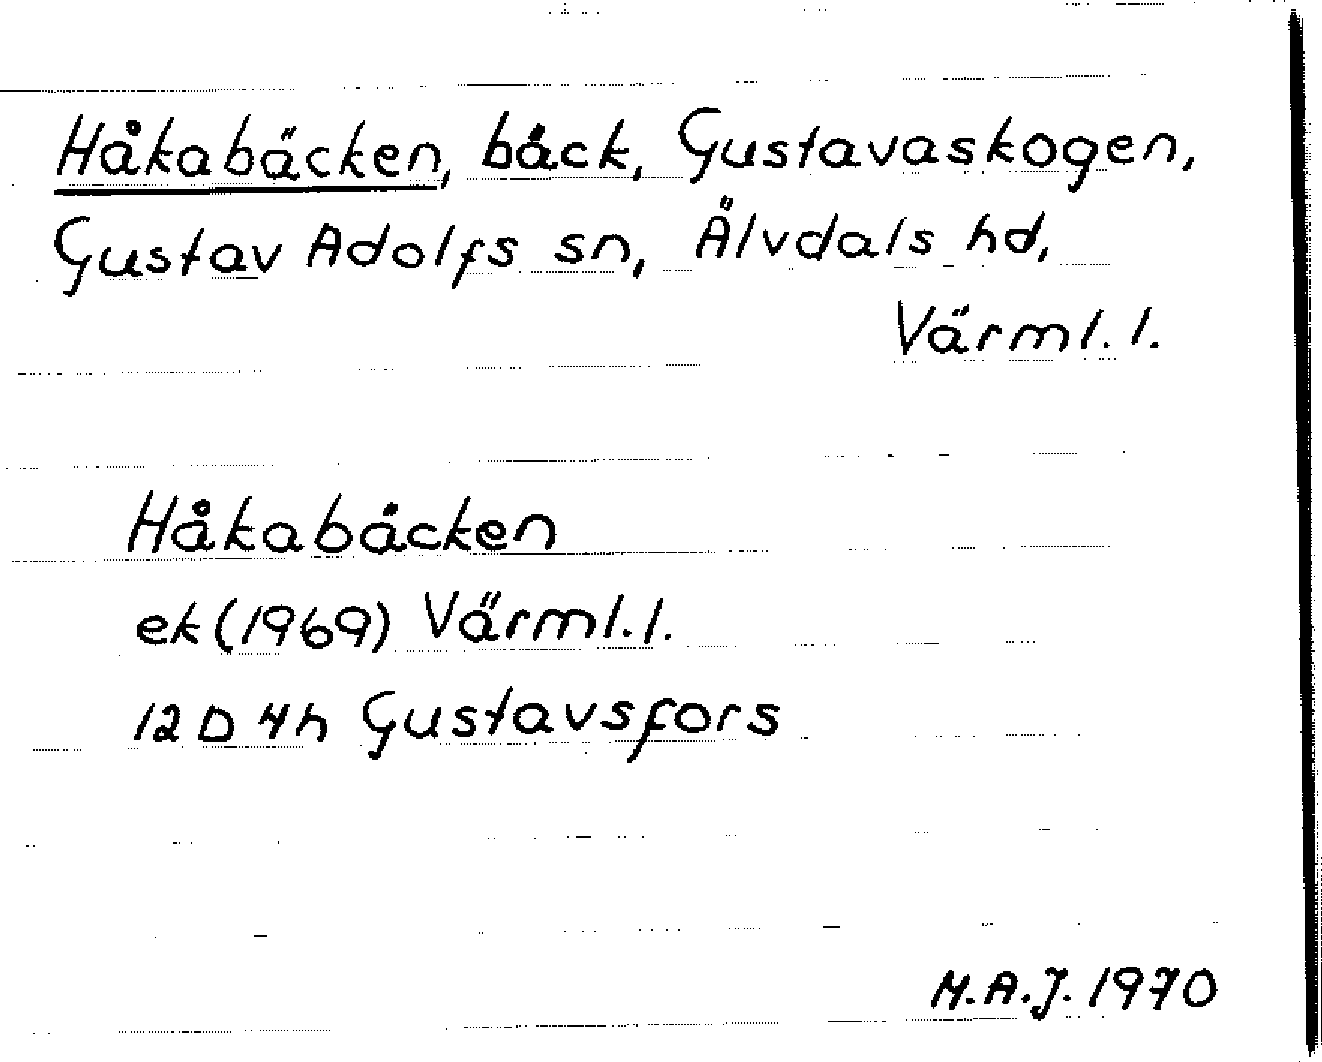 Håkabäcken, bäck, Gustavaskogen,
Gustav Adolfs sn, Älvdals hd,
Värml. l.
Håkabäcken
ek (1969) Värml. l.
12 D 4h Gustavsfors
M.A.J. 1970